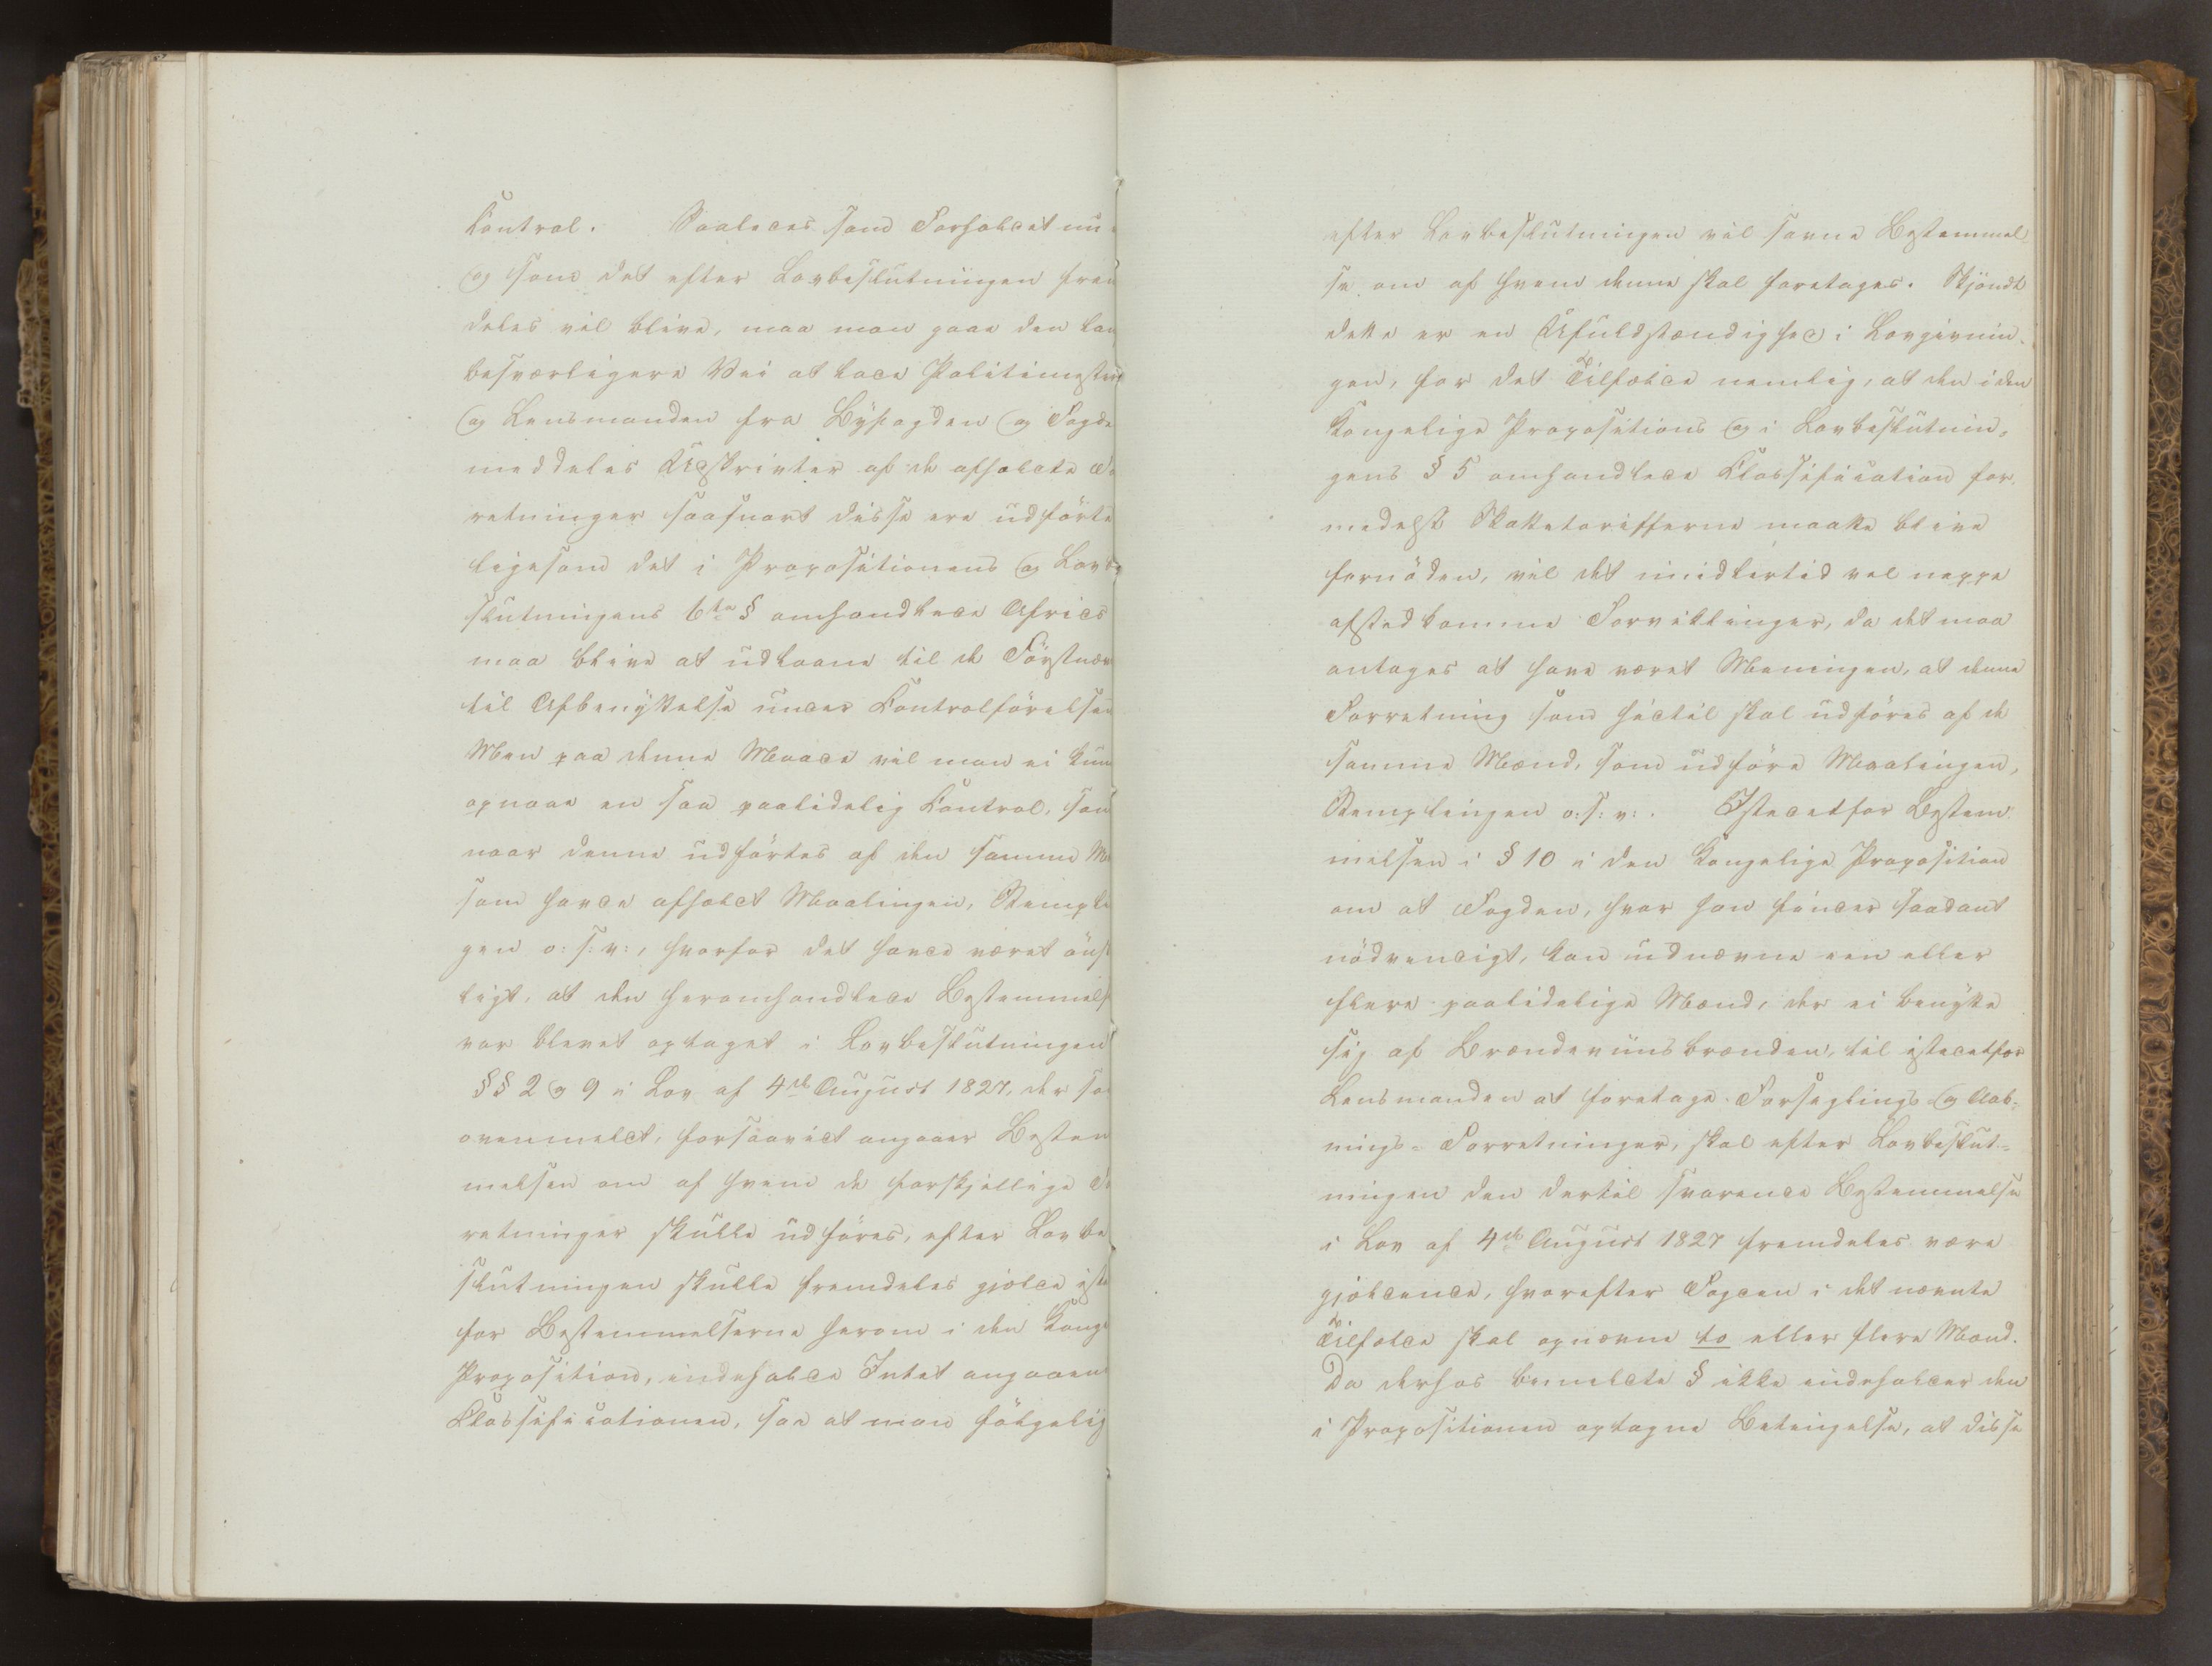 Control. Saaledes som Forholdet nu
og som det efter Lovbeslutningen frem
deles vil blive, maa man gaae den lan
besværligere Vei at lade Politimesteren
og Lensmanden fra Byfogden og Fogde
meddeles Udskrivter af de afholdte Fo
retninger saasnart disse ere udförte
ligesom det i Propositionens og Lovbe
slutningens 6te § omhandlede Afrids
maa blive at udlaane til de Förstnæv
til Afbenyttelse under Controlförelsen
Men paa denne Maade vil man ei kun
opnaae en saa paalidelig Control, som
naar denne udförtes af den samme Ma
som havde afholdt Maalingen, Stempli
gen o: s: v:, hvorfor det havde været önske
ligt, at den heromhandlede Bestemmelse
var blevet optaget i Lovbeslutningen
§§ 2 og 9 i Lov af 4de August 1827, der so
ovenmeldt, forsaavidt angaaer Bestem
melsen om af hvem de forskjellige Fo
retninger skulle udföres, efter Lovbe
slutningen skulle fremdeles gjælde iste
for Bestemmelserne herom i den Konge
Proposition, indeholde Intet angaaen
Classificationen, saa at man fölgelig
efter Lovbeslutningen vil savne Bestemmel
se om af hvem denne skal foretages. Skjöndt
dette er en Ufuldstændighed i Lovgivnin-
gen, for det Tilfælde nemlig, at den i den
Kongelige Propositions og i Lovbeslutnin-
gens § 5 omhandlede Classification for-
medelst Skattetarifferne maatte blive
fornöden, vil det imidlertid vel neppe
afstedkomme Forviklinger, da det maa
antages at have været Meningen, at denne
Forretning som hidtil skal udföres af de
samme Mænd, som udföre Maalingen,
Stemplingen o: s: v:. Istedetfor Bestem-
melsen i § 10 i den Kongelige Proposition
om at Fogden, hvor han finder saadant
nödvendigt, kan udnævne een eller
flere paalidelige Mænd, der ei benytte
sig af Brændeviinsbrænden, til istedetfor
Lensmanden at foretage Forseglings og Aab-
nings-Forretninger, skal efter Lovbeslut-
ningen den dertil svarende Bestemmelse
i Lov af 4de August 1827 fremdeles være
gjældende, hvorefter Fogden i det nævnte
Tilfælde skal opnævne to eller flere Mænd.
Da derhos bemeldte § ikke indeholder den
i Propositionen optagne Betingelse, at disse